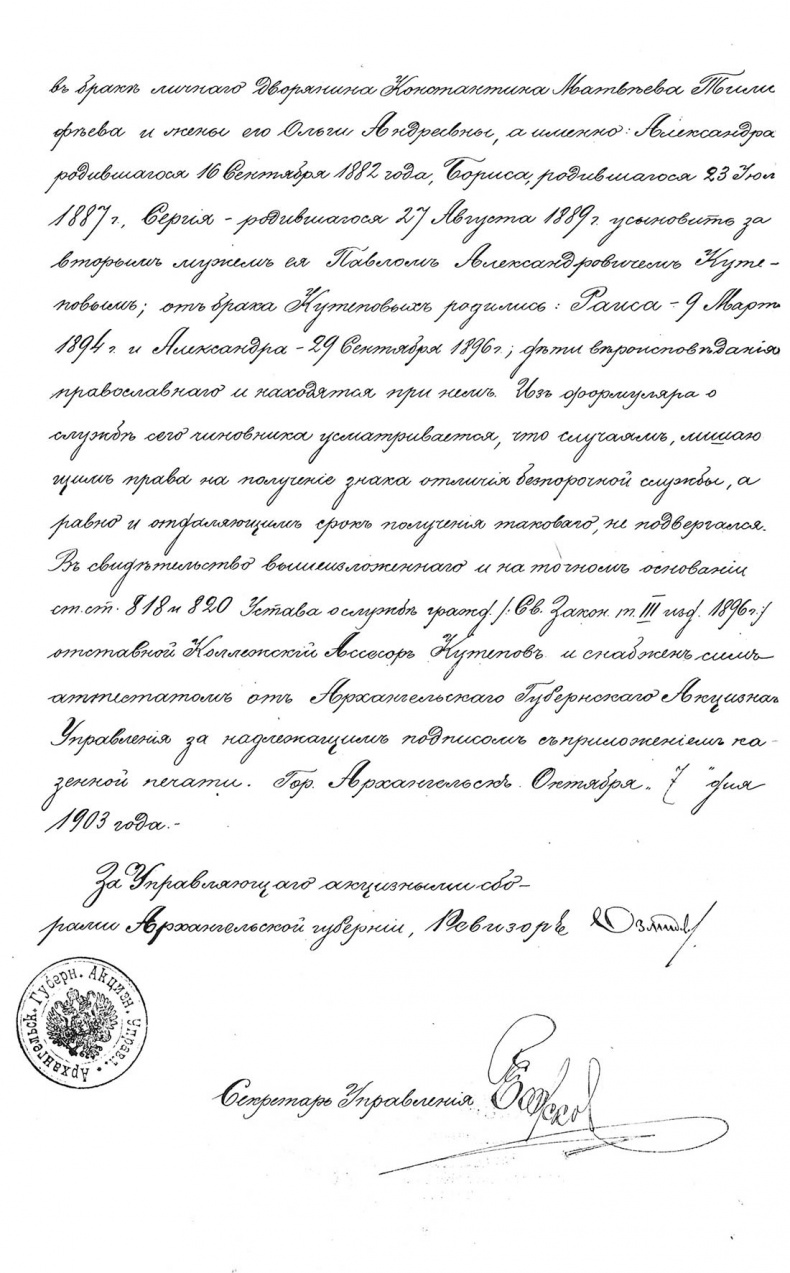 въ бракѣ личнаго Дворянина Константина Матвѣева Тими
фѣева и жены его Ольги Андреевны, а именно: Александра
родившагося 16 Сентября 1882 года, Бориса, родившагося 23 Июл
1887 г., Сергія - родившагося 27 Августа 1889 г. усыновить за
вторымъ мужемъ ея Павломъ Александровичемъ Куте-
повымъ; отъ брака Кутеповыхъ родились: Раиса - 9 Март
1894 г. и Александра - 29 Сентября 1896 г.; дѣти вѣроисповѣданія
православнаго и находятся при немъ. Изъ формуляра о
службѣ сего чиновника усматривается, что случаямъ, лишаю
щимъ права на полученіе знака отличія безпорочной службы, а
равно и отдаляющимъ срокъ полученія таковаго, не подвергался.
Въ свидѣтельство вышеизложеннаго и на точномъ основаніи
ст.ст. 818 и 820 Устава о службѣ гражд. /: Св. Закон. т. III изд. 1896 г :/
отставной Коллежскій Ассесоръ Кутеповъ и снабженъ симъ
аттестатомъ отъ Архангельскаго Губернскаго Акцизна
Управленія за надлежащимъ подписомъ съ приложеніемъ ка-
зенной печати. Гор. Архангельскъ. Октября „ 7 " дня
1903 года.-
За Управляющаго акцизными сбо-
рами Архангельской губерніи, Ревизоръ
Архангельск. Губерн. Акцизн. Управл.
Секретарь Управленія